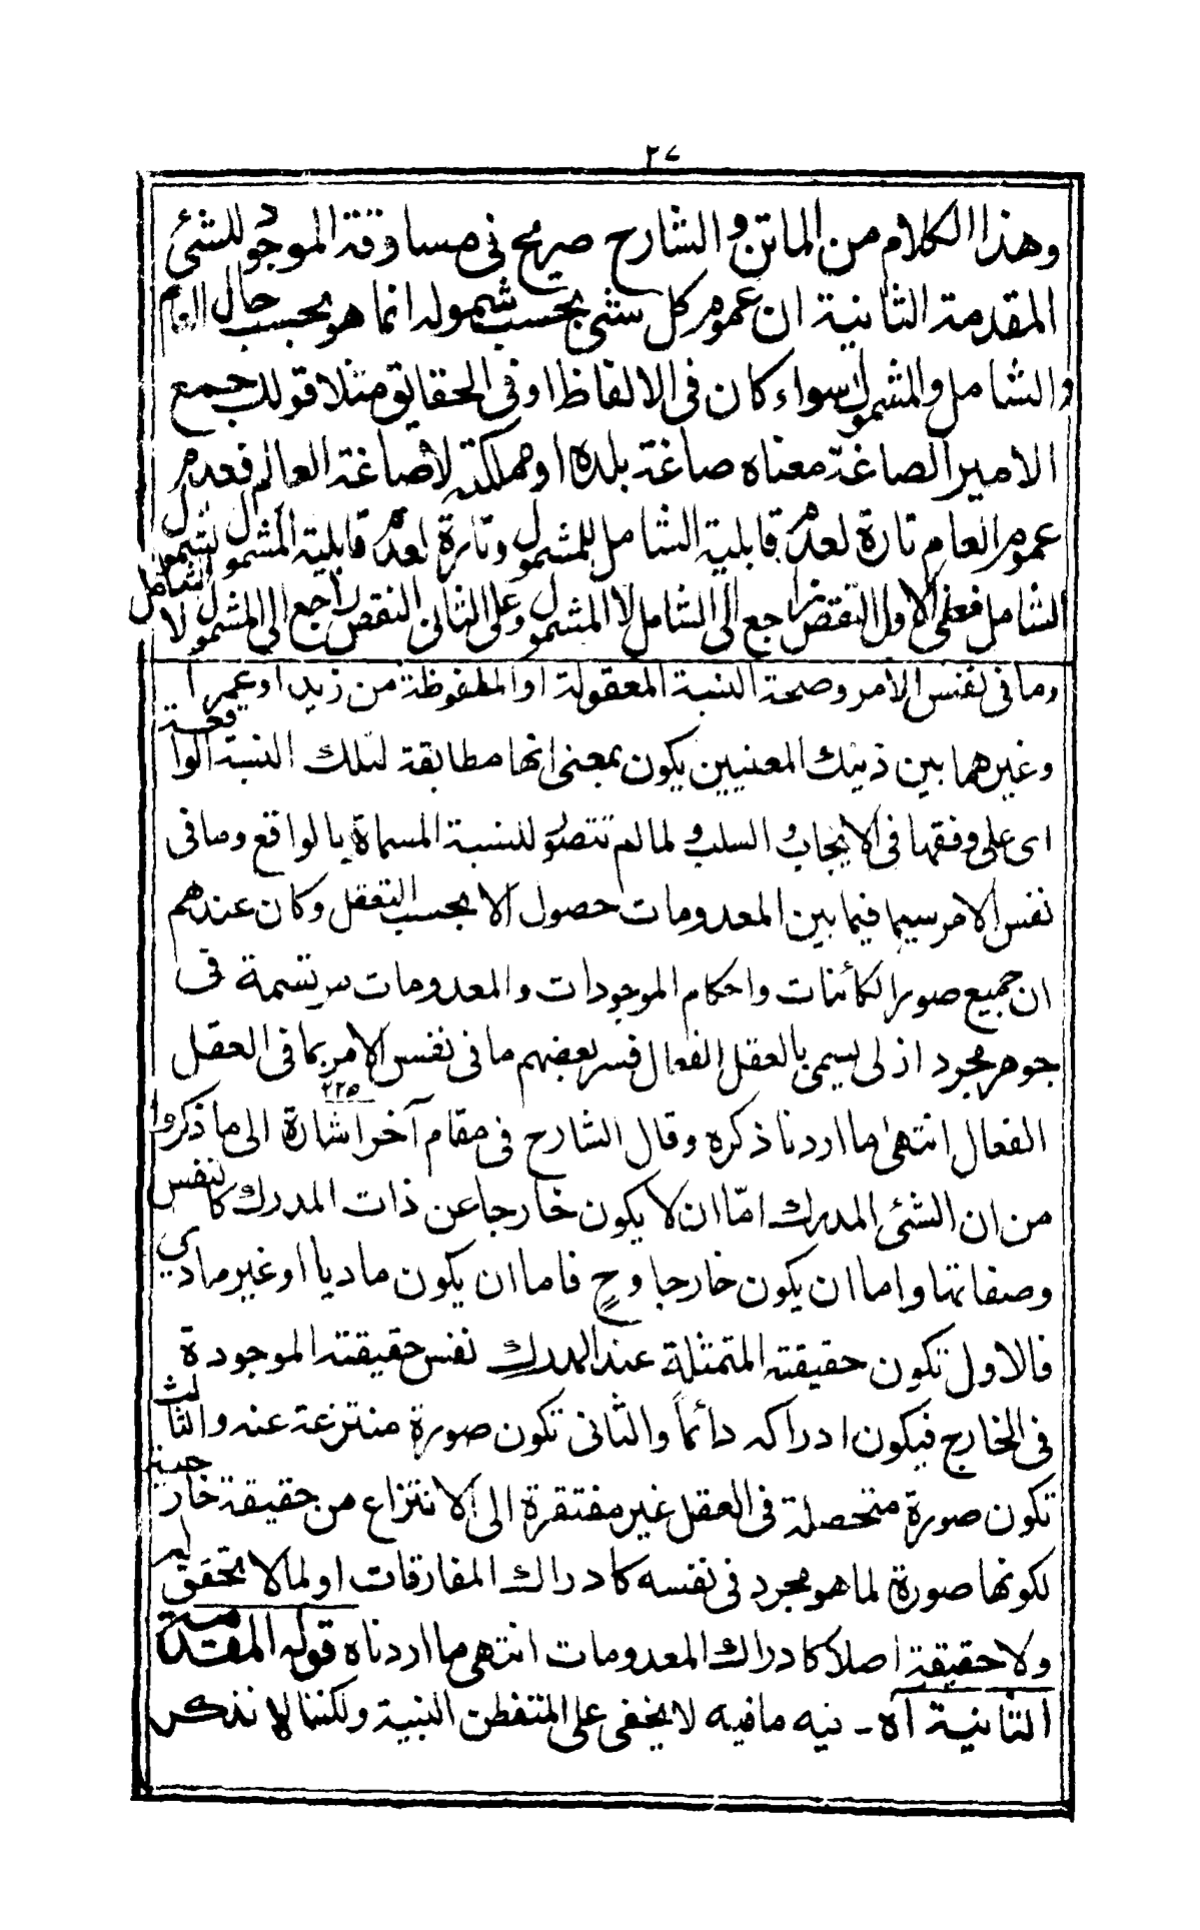 ٢٧
وهذا الكلام من الماتن والشارح صريح فى مساوقة الموجود للشئ
المقدمة الثانية ان عموم كل شئ بحسب شموله انما هو بحسب حال العام
والشامل والمشمول سواء كان فى الالفاظ او فى الحقايق مثلا قولك جمع
الامير الصاغة معناه صاغة بلده او مملكته لا صاغة العالم فعدم
عموم العام تارة لعدم قابلية الشامل للمشمول وتارة لعدم قابلية المشمول لشمول الشامل
لشامل فعلى الاول النقض راجع الى الشامل لا المشمول وعلى الثانى النقض راجع الى المشمول لا
وما فى نفس الامر وصحة النسبة المعقولة او الملفوظة من زيد او عمر او
وغيرهما بين ذينك المعنيين يكون بمعنى انها مطابقة لتلك النسبة الواقعة
اى على وفقها فى الايجاب والسلب ولما لم تتصور للنسبة المسماة بالواقع وما فى
نفس الامر سيما فيما بين المعدومات حصول الا بحسب التعقل وكان عندهم
ان جميع صور الكائنات واحكام الموجودات والمعدومات مرتسمة فى
جوهر مجرد ازلى يسمى بالعقل الفعال فسر بعضهم ما فى نفس الامر بما فى العقل
٢٢٥
الفعال انتهى ما اردنا ذكره وقال الشارح فى مقام آخر اشارة الى ما ذكروا
من ان الشئ المدرك امّا ان لا يكون خارجا عن ذات المدرك كالنفس
وصفاتها واما ان يكون خارجا وح فاما ان يكون ماديا او غير مادي
فالاول تكون حقيقته المتمثلة عند المدرك نفس حقيقته الموجودة
فى الخارج فيكون ادراكه دائماً والثانى تكون صورة منتزعة عنه والثالث
تكون صورة متحصلة فى العقل غير مفتقرة الى الانتزاع من حقيقة خارجية
لكونها صورة لما هو مجرد فى نفسه كادراك المفارقات او لما لا تحقق له
ولا حقيقة اصلا كادراك المعدومات انتهى ما اردناه قوله المقدمة
الثانية آه - فيه ما فيه لا يخفى على المتفطن النبيه ولكننا لا نذكر